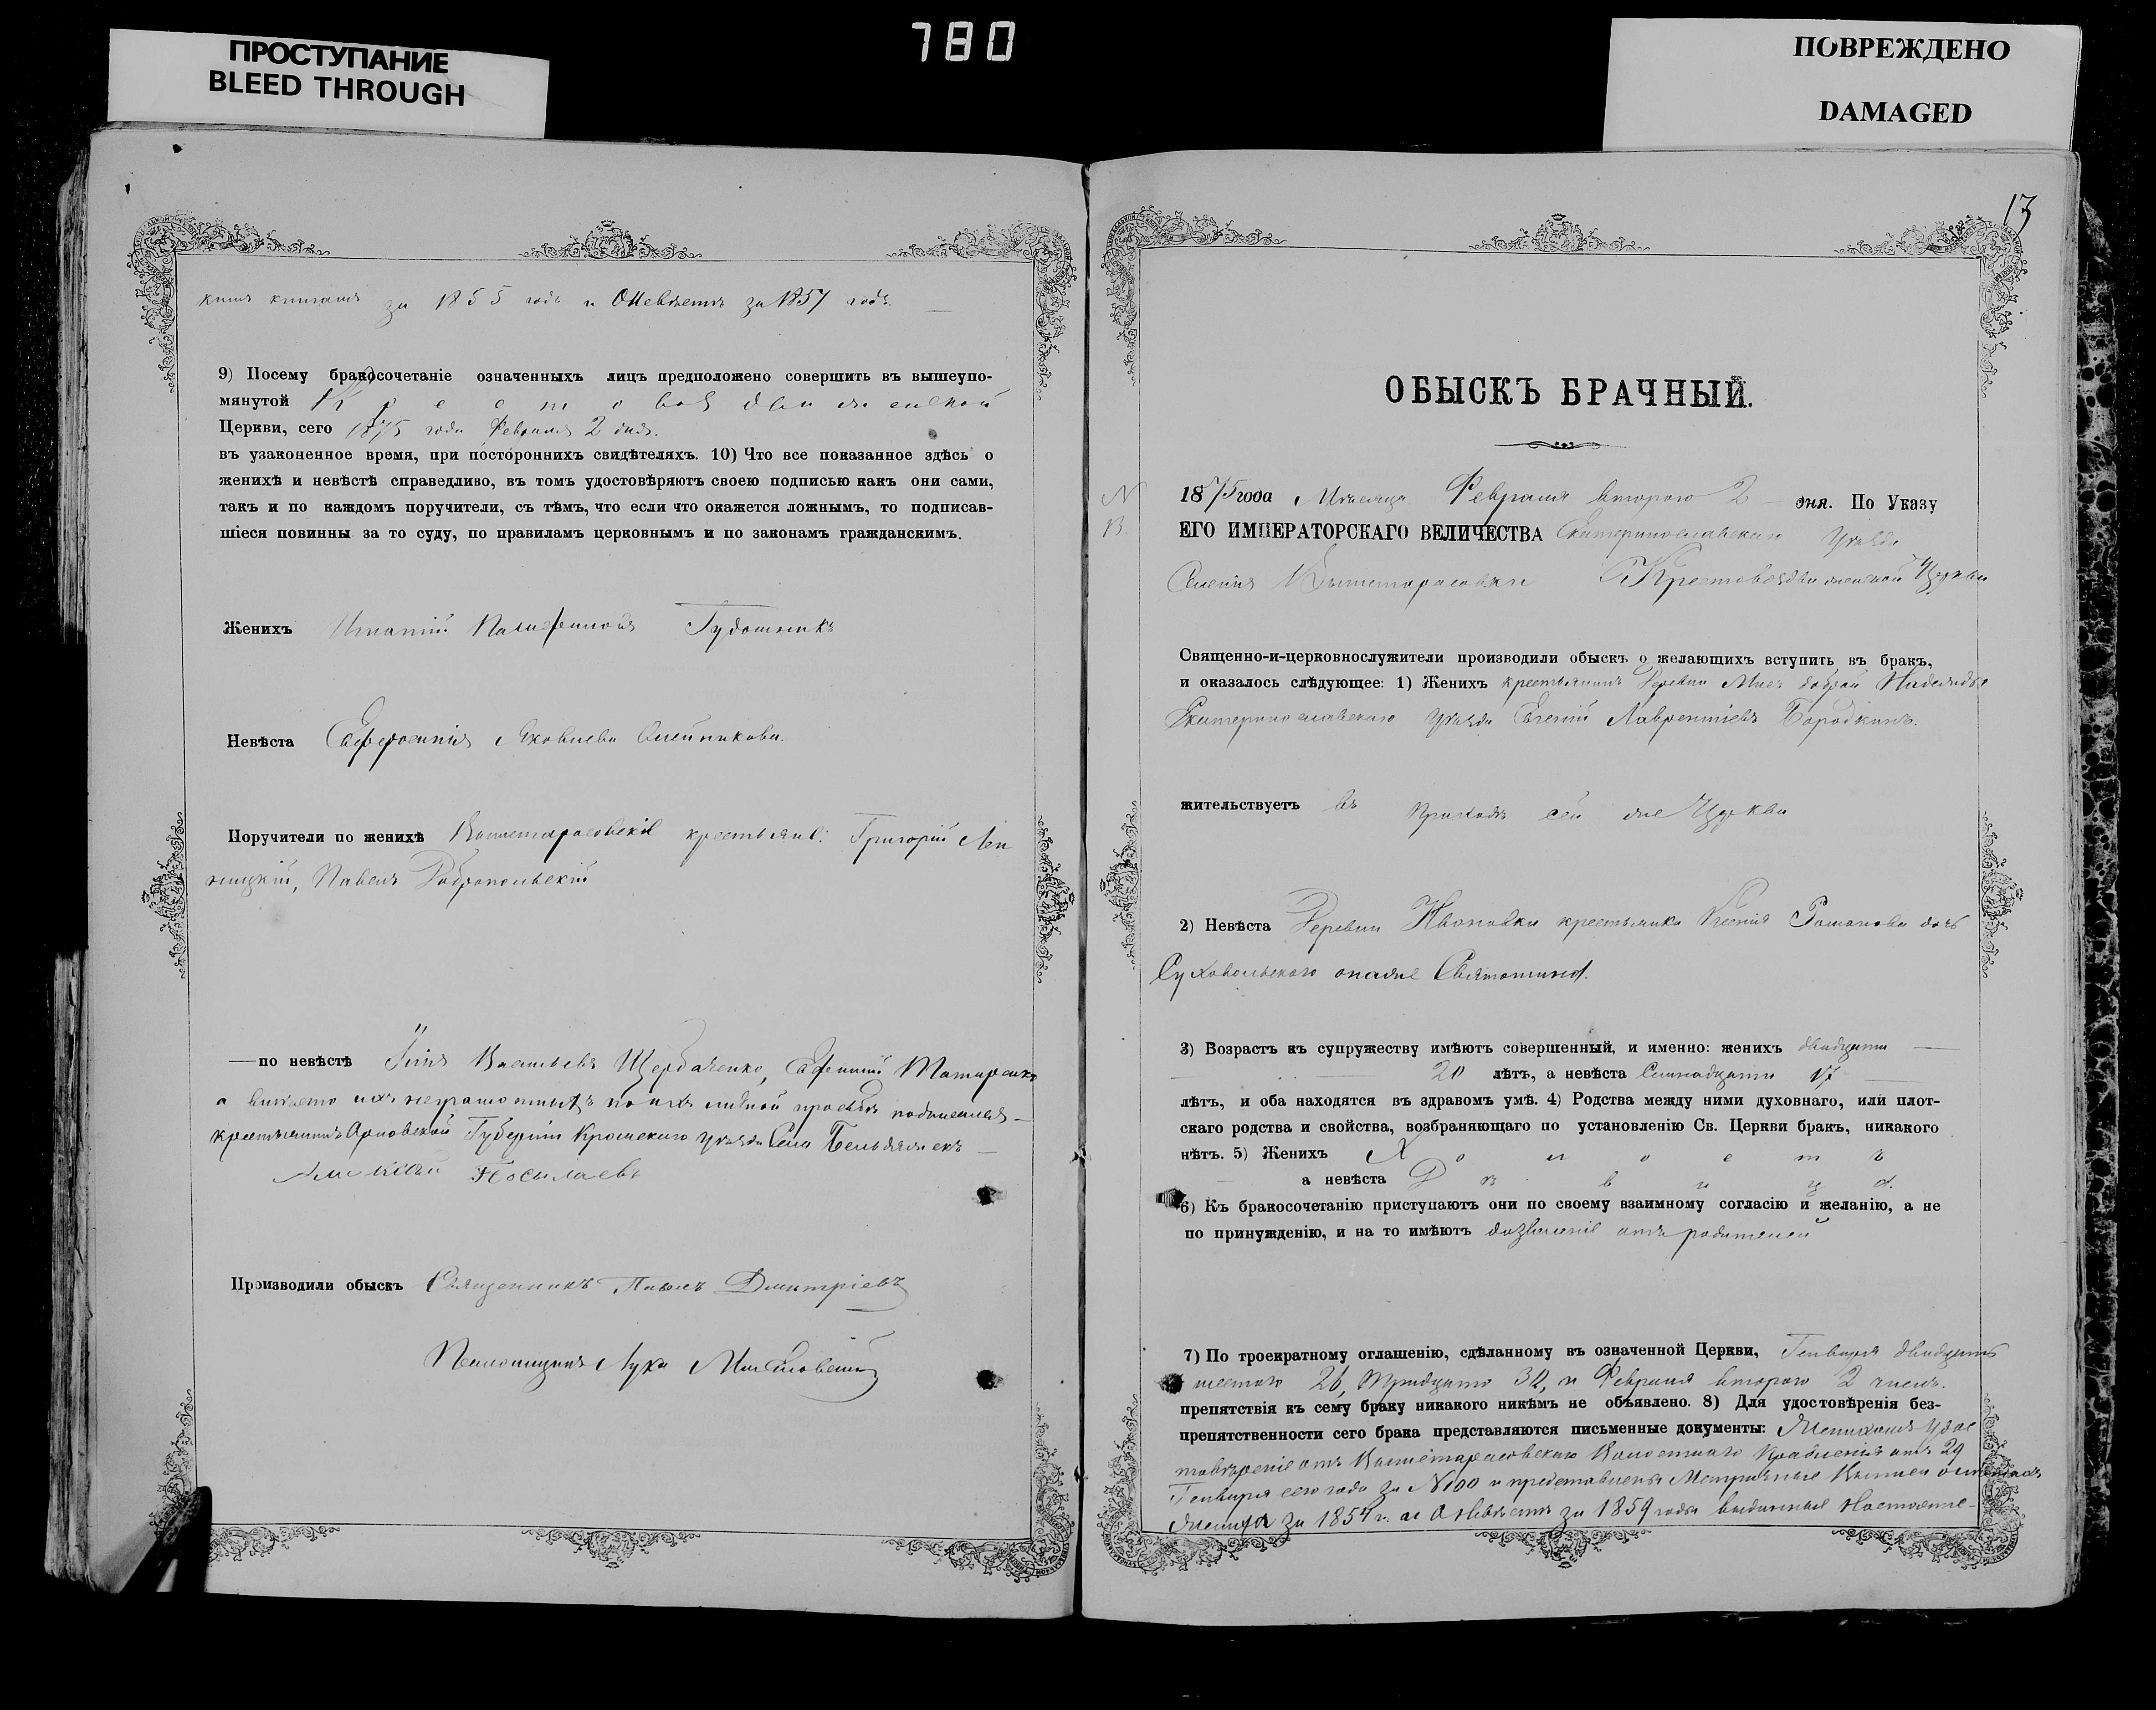 780
ПРОСТУПАНИЕ
BLEED THROUGH
ПОВРЕЖДЕНО
DAMAGED
кимъ книгамъ за 1855 годъ и Оневѣстѣ за 1857 годъ.
9) Посему бракосочетаніе означенныхъ лицъ предположено совершить въ вышеупо-
мянутой Крестовоздвиженской
Церкви, сего 1875 года Февраля 2 дня.
въ узаконенное время, при постороннихъ свидѣтеляхъ. 10) Что все показанное здѣсь о
женихѣ и невѣстѣ справедливо, въ томъ удостовѣряютъ своею подписью какъ они сами,
такъ и по каждомъ поручители, съ тѣмъ, что если что окажется ложнымъ, то подписав-
шіеся повинны за то суду, по правиламъ церковнымъ и по законамъ гражданскимъ.
Женихъ Гудошникъ
Невѣста Евфросинія Яковлева Олейникова.
Поручители по женихѣ Вышетарасовскіе крестьяне: Григорій
Павелъ Добропольскій
— по невѣстѣ Васильевъ Щербаченко, Татаренко
а вмѣсто ихъ неграмотныхъ по ихъ личной просьбѣ подписался
крестьянинъ Орловской Губерніи Кромскаго уѣзда Села
Алексѣй
Производили обыскъ Священникъ Павелъ Дмитріевъ
Псаломщикъ Лука
13
ОБЫСКЪ БРАЧНЫЙ.
N
В.
1875 года Мѣсяца Февраля второго 2 дня. По Указу
ЕГО ИМПЕРАТОРСКАГО ВЕЛИЧЕСТВА Екатеринославскаго Уѣзда
Селенія Вышетарасовки Крестовоздвиженской Церкви
Священно-и-церковнослужители производили обыскъ о желающихъ вступить въ бракъ,
и оказалось слѣдующее: 1) Женихъ крестьянинъ Деревни Мыса доброй Надежды
Екатеринославскаго уѣзда Евгеній Лаврентіевъ Бородкинъ.
жительствуетъ въ приходѣ сей же Церкви
2) Невѣста Деревни Ивановки крестьянка Ксенія Романова дочь
Суховольского
3) Возрастъ къ супружеству имѣютъ совершенный, и именно: женихъ двадцати
20 лѣтъ, а невѣста Семнадцати 17
лѣтъ, и оба находятся въ здравомъ умѣ. 4) Родства между ними духовнаго, или плот-
скаго родства и свойства, возбраняющаго по установленію Св. Церкви бракъ, никакого
нѣтъ. 5) Женихъ Холостъ
а невѣста Дѣвица.
6) Къ бракосочетанію приступаютъ они по своему взаимному согласію и желанію, а не
по принужденію, и на то имѣютъ дозволеніе отъ родителей
7) По троекратному оглашенію, сдѣланному въ означенной Церкви, Генваря двадцать
шестаго 26, тридцато 30, и Февраля второго 2 чиселъ.
препятствія къ сему браку никакого никѣмъ не объявлено. 8) Для удостовѣренія без-
препятственности сего брака представляются письменные документы: Женихомъ удос
товѣреніе отъ Вышетарасовскаго Волостнаго Правленія отъ 29
Генваря сего года за №100 и представлены Метричные
Жениха за 1854 г. и О невѣстѣ за 1859 годъ выданные